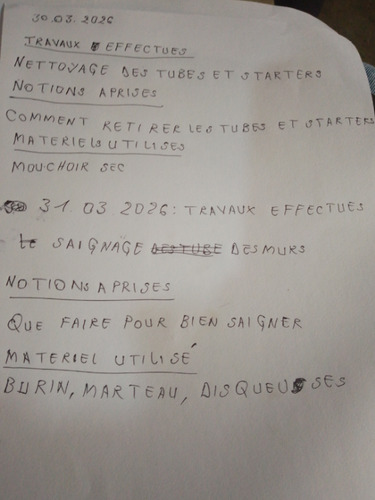 30.03.2026
TRAVAUX EFFECTUES
NETTOYAGE DES TUBES ET STARTERS
NOTIONS APRISES
COMMENT RETIRER LES TUBES ET STARTERS
MATERIELS UTILISES
MOUCHOIR SEC
31.03.2026: TRAVAUX EFFECTUES
SAIGNAGE DES MURS
NOTIONS APRISES
QUE FAIRE POUR BIEN SAIGNER
MATERIEL UTILISÉ
BURIN, MARTEAU, DISQUEUSES